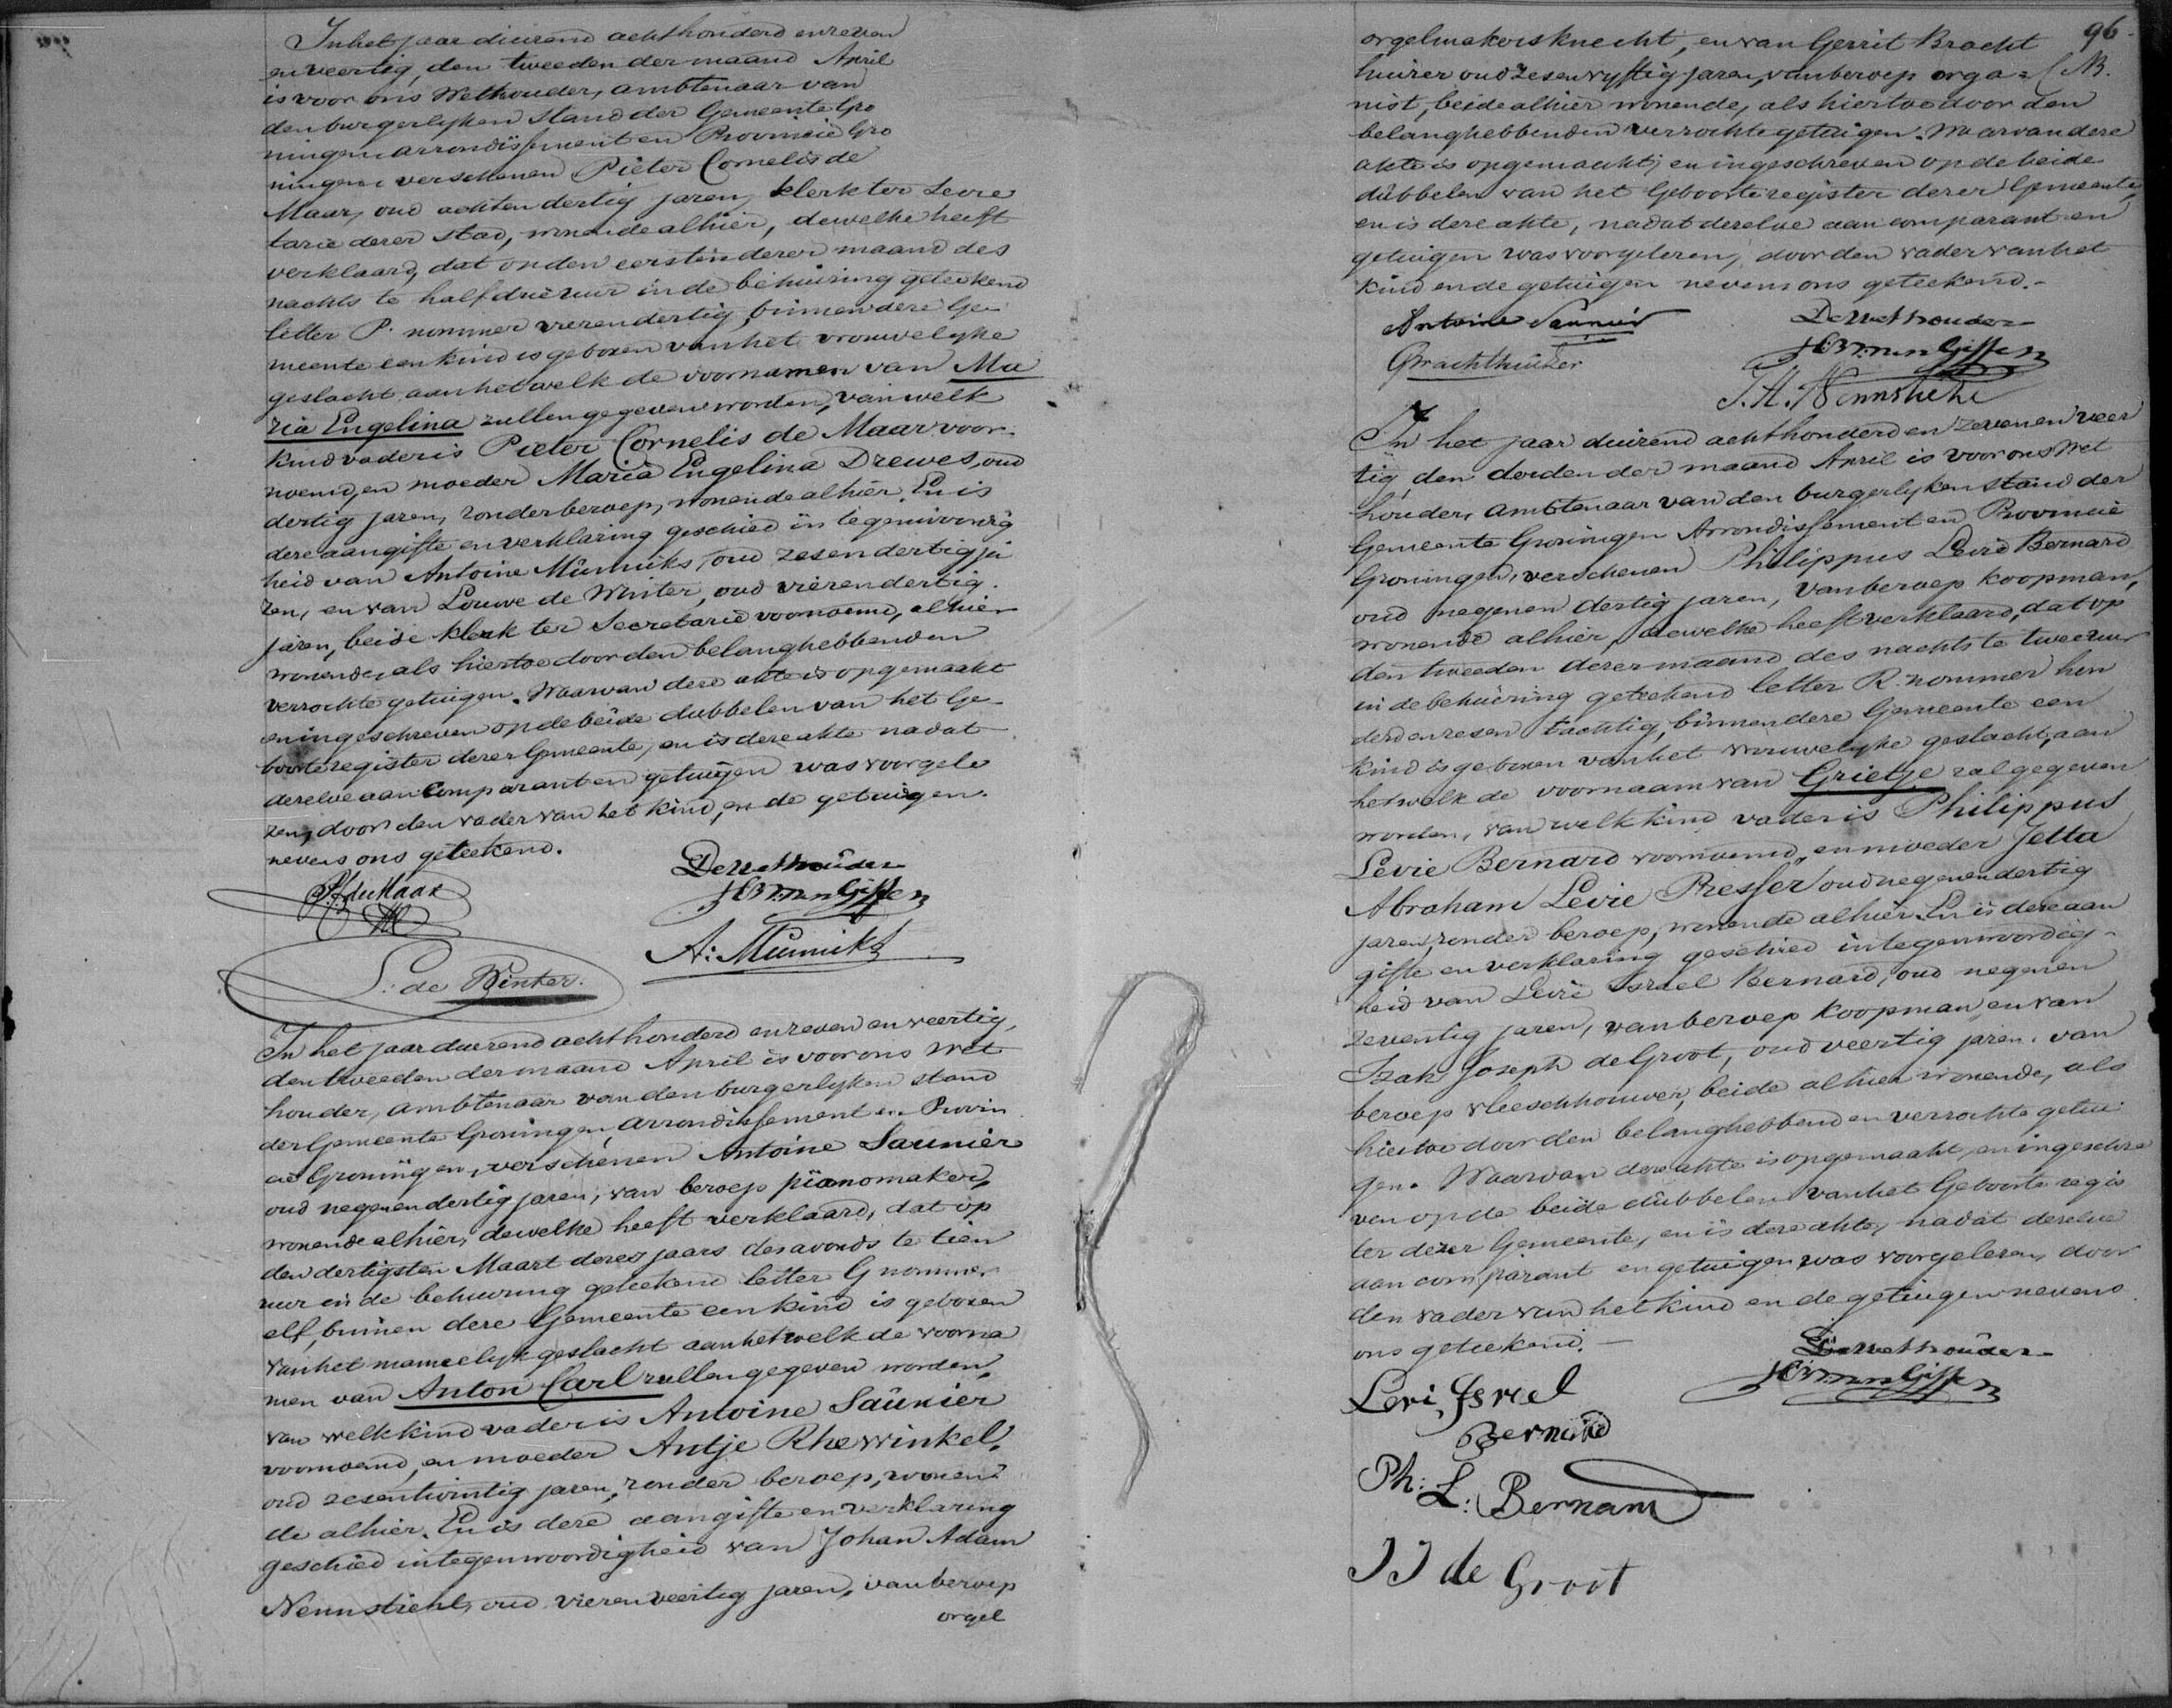 In het jaar duizend achthonderd en zeven
en veertig, den tweeden der maand April
is voor ons Wethouder, ambtenaar van
den burgerlyken stand der Gemeente Gro
ningen arrondissement en Provincie Gro
ningen verschenen Pieter Cornelis de
Maar, oud acht en dertig jaren, klerk ter Secre
tarie dezer stad, wonende alhier, dewelke heeft
verklaard, dat op den eersten dezer maand des
nachts te half drie uur in de behuizing geteekend
letter P. nommer vier en dertig, binnen deze Ge
meente een kind is geboren van het vrouwelyke
geslacht, aan hetwelk de voornamen van Ma
ria Engelina zullen gegeven worden, van welk
kind vader is Pieter Cornelis de Maar voor
noemd, en moeder Maria Engelina Drewes, oud
dertig jaren, zonder beroep, wonende alhier. En is
deze aangifte en verklaring geschied in tegenwoordig
heid van Antoine Munniks, oud zes en dertig ja
ren, en van Louwe de Winter, oud vier en dertig
jaren, beide klerk ter Secretarie voornoemd, alhier
wonende, als hiertoe door den belanghebbenden
verzochte getuigen. Waarvan deze akte is opgemaakt
en ingeschreven op de beide dubbelen van het Ge
boorteregister dezer Gemeente, en is deze akte nadat
dezelve aan Comparant en getuigen was voorgele
zen, door den vader van het kind, en de getuigen
nevens ons geteekend.
De Wethouder
PC de Maar
HB van Giffen
A: Munniks
L: de Winter.
In het jaar duizend achthonderd en zeven en veertig,
den tweeden der maand April is voor ons Wet
houder, ambtenaar van den burgerlyken stand
der Gemeente Groningen, arrondissement en Provin
cie Groningen, verschenen Antoine Saunier
oud negen en dertig jaren, van beroep pianomaker,
wonende alhier, dewelke heeft verklaard, dat op
den dertigsten Maart dezes jaars des avonds te tien
uur in de behuizing geteekend letter G nommer
elf, binnen deze Gemeente een kind is geboren
van het mannelyk geslacht aan hetwelk de voorna
men van Anton Carl zullen gegeven worden,
van welk kind vader is Antoine Saunier
voornoemd, en moeder Antje Rhewinkel,
oud zes en twintig jaren, zonder beroep, wonen
de alhier. En is deze aangifte en verklaring
geschied in tegenwoordigheid van Johan Adam
Nennstiehl, oud vier en veertig jaren, van beroep
orgel
96
orgelmakersknecht, en van Gerrit Bracht
huizer oud zes en vyftig jaren, van beroep orga=
nist, beide alhier wonende, als hiertoe door den
belanghebbenden verzochte getuigen. Waarvan deze
akte is opgemaakt, en ingeschreven op de beide
dubbelen van het Geboorteregister dezer Gemeente,
en is deze akte, nadat dezelve aan comparant en
getuigen was voorgelezen, door den vader van het
kind en de getuigen nevens ons geteekend.
Antoine Saunier
De Wethouder
HB van Giffen
G Brachthuizer
J. A. Nennstiehl
In het jaar duizend achthonderd en zeven en veer
tig, den derden der maand April is voor ons Wet
houder, ambtenaar van den burgerlyken stand der
Gemeente Groningen Arrondissement en Provincie
Groningen, verschenen Philippus Levie Bernard
oud negen en dertig jaren, van beroep koopman,
wonende alhier, dewelke heeft verklaard, dat op
den tweeden dezer maand des nachts te twee uur
in de behuizing geteekend letter R. nommer hon
derd en zes en tachtig, binnen deze Gemeente een
kind is geboren van het vrouwelyke geslacht, aan
hetwelk de voornaam van Grietje zal gegeven
worden, van welk kind vader is Philippus
Levie Bernard voornoemd, en moeder Jetta
Abraham Levie Presser oud negen en dertig
jaren, zonder beroep, wonende alhier. En is deze aan
gifte en verklaring geschied in tegenwoordig
heid van Levie Israel Bernard, oud negen en
zeventig jaren, van beroep koopman, en van
Izak Joseph de Groot, oud veertig jaren, van
beroep vleeschhouwer, beide alhier wonende, als
hiertoe door den belanghebbenden verzochte getui
gen. Waarvan deze akte is opgemaakt, en ingeschre
ven op de beide dubbelen van het Geboorte regis
ter dezer Gemeente, en is deze akte, nadat dezelve
aan comparant en getuigen was voorgelezen, door
den vader van het kind en de getuigen nevens
ons geteekend.
De Wethouder
HB van Giffen
Levi Isreel
Bernard
Ph: L: Bernard
I J de Groot